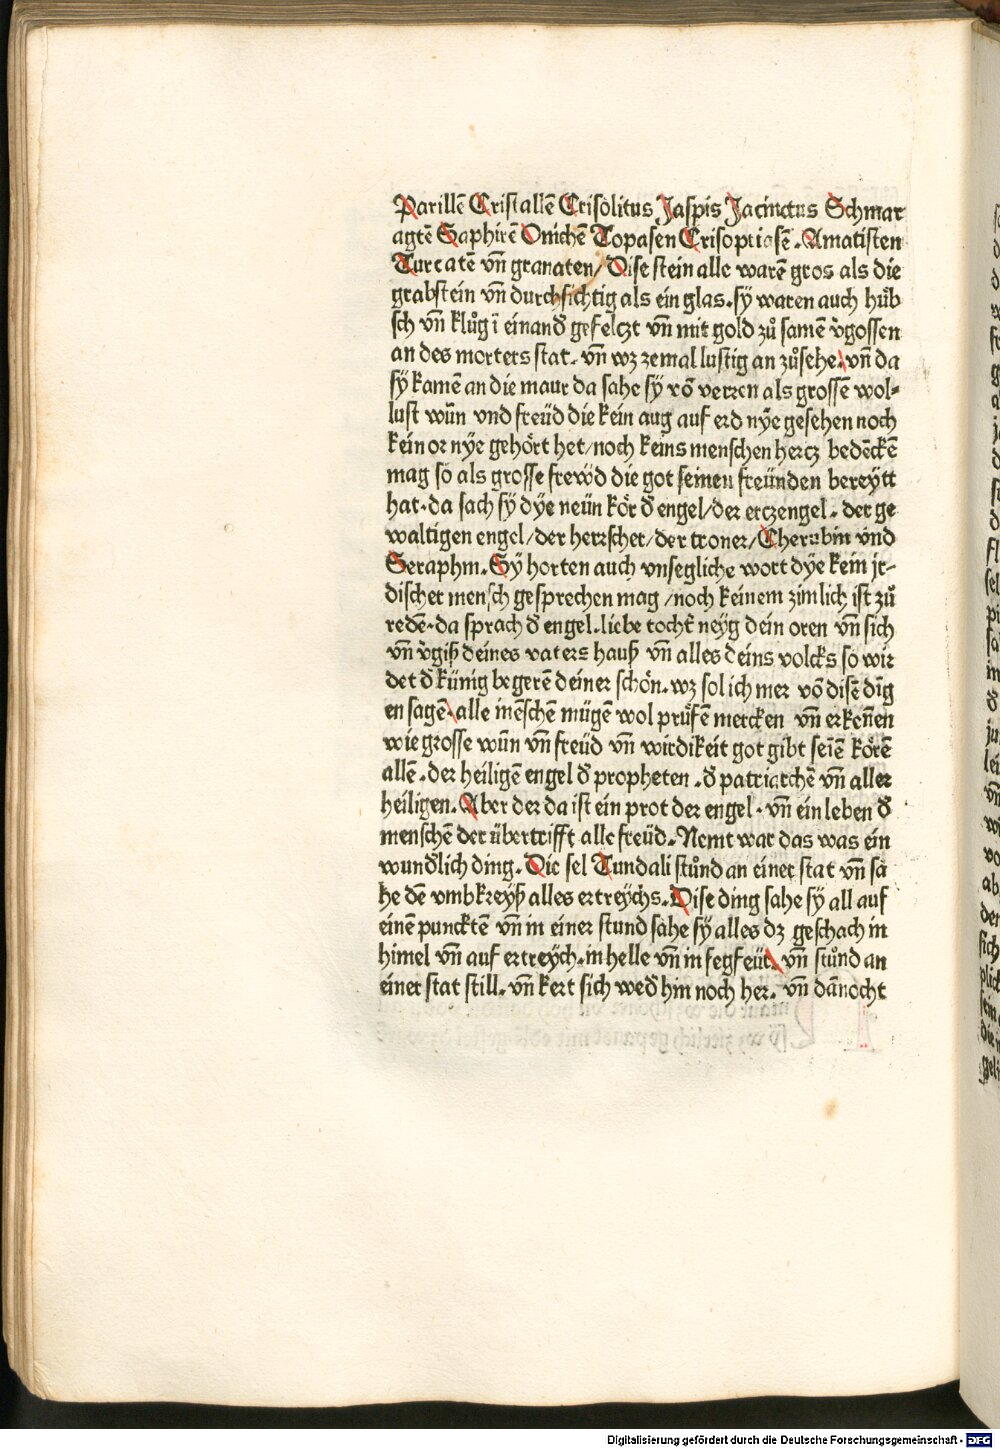 Parillē Cristallē Crisolitus Jaspis Jacinctus Schmar
agtē Saphirē Onichē Topasen Crisoptiasē. Amatisten
Turcatē vn̄ granaten/ Dise stein alle warē gros als die
grabstein vn̄ durchsichtig als ein glas. sÿ waren auch hüb
sch vn̄ klůg ī einand̄ gefelczt vn̄ mit gold zů samē v̄gossen
an des morters stat. vn̄ wz zemal lustig an zůsehē. vn̄ da
sÿ kamē an die maur da sahe sÿ vō verren als grossē wol⸗
lust wūn vnd freüd die kein aug auf erd nÿe gesehen noch
kein or nÿe gehört het/noch keins menschen hercz bedēckē
mag so als grosse frewd die got seinen freünden bereÿtt
hat. da sach sÿ dÿe neün kör d̄ engel/der erczengel. der ge
waltigen engel/der herrscher/der troner/Cherubin vnd
Seraphin. Sÿ horten auch vnsegliche wort dÿe kein jr⸗
discher mensch gesprechen mag/noch keinem zimlich ist zů
redē. da sprach d̄ engel. liebe tocht̄ neÿg dein oren vn̄ sich
vn̄ v̄giß deines vaters hauß vn̄ alles deins volcks so wir
det d̄ künig begerē deiner schön. wz sol ich mer vō disē dīg
en sagē. alle mēschē mügē wol prüfē mercken vn̄ erkēnen
wie grosse wūn vn̄ freüd vn̄ wirdikeit got gibt seīē körē
allē. der heiligē engel d̄ propheten. d̄ patriarchē vn̄ aller
heiligen. Aber der da ist ein prot der engel. vn̄ ein leben d̄
menschē der übertrifft alle freüd. Nemt war das was ein
wund̄lich ding. Die sel Tundali stůnd an einer stat vn̄ sa
he dē vmbkreÿß alles ertreÿchs. Dise ding sahe sÿ all auf
einē puncktē vn̄ in einer stund sahe sÿ alles dz geschach in
himel vn̄ auf ertreÿch. in helle vn̄ in fegfeür. vn̄ stůnd an
einer stat still. vn̄ kert sich wed̄ hin noch her. vn̄ dānocht
Digitalisierung gefördert durch die Deutsche Forschungsgemeinschaft - DFG